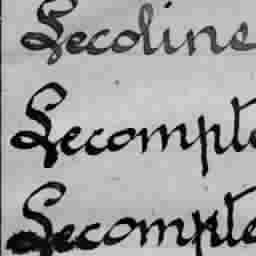 Lecoline
Lecompte
Lecompte